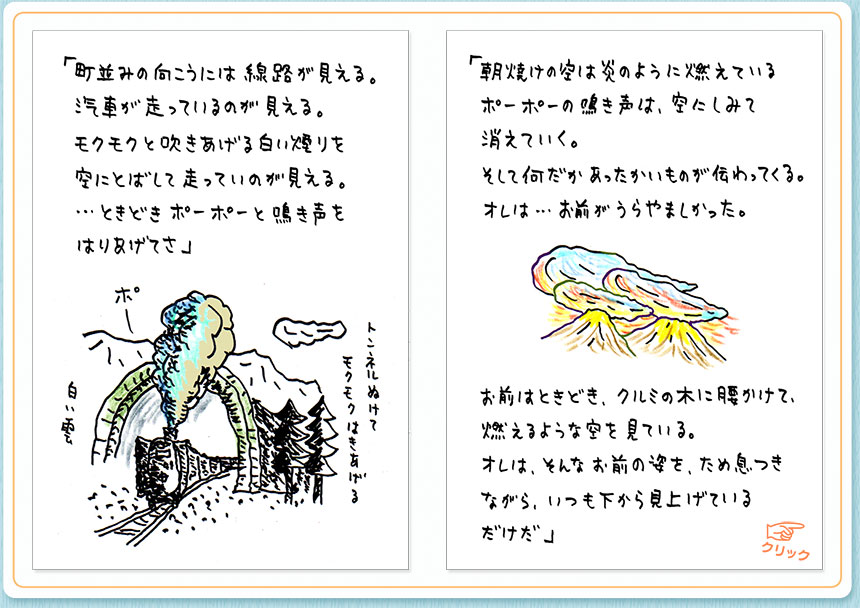 「町並みの向こうには線路が見える。
汽車が走っているのが見える。
モクモクと吹きあげる白い煙りを
空にとばして走っていのが見える。
…ときどきポーポーと鳴き声を
はりあげてさ」
ポー
トンネルぬけて
モクモクはきあげる
白い雲
「朝焼けの空は炎のように燃えている
ポーポーの鳴き声は、空にしみて
消えていく。
そして何だかあったかいものが伝わってくる。
オレは…お前がうらやましかった。
お前はときどき、クルミの木に腰かけて、
燃えるような空を見ている。
オレは、そんなお前の姿を、ため息つき
ながら、いつも下から見上げている
だけだ」
クリック